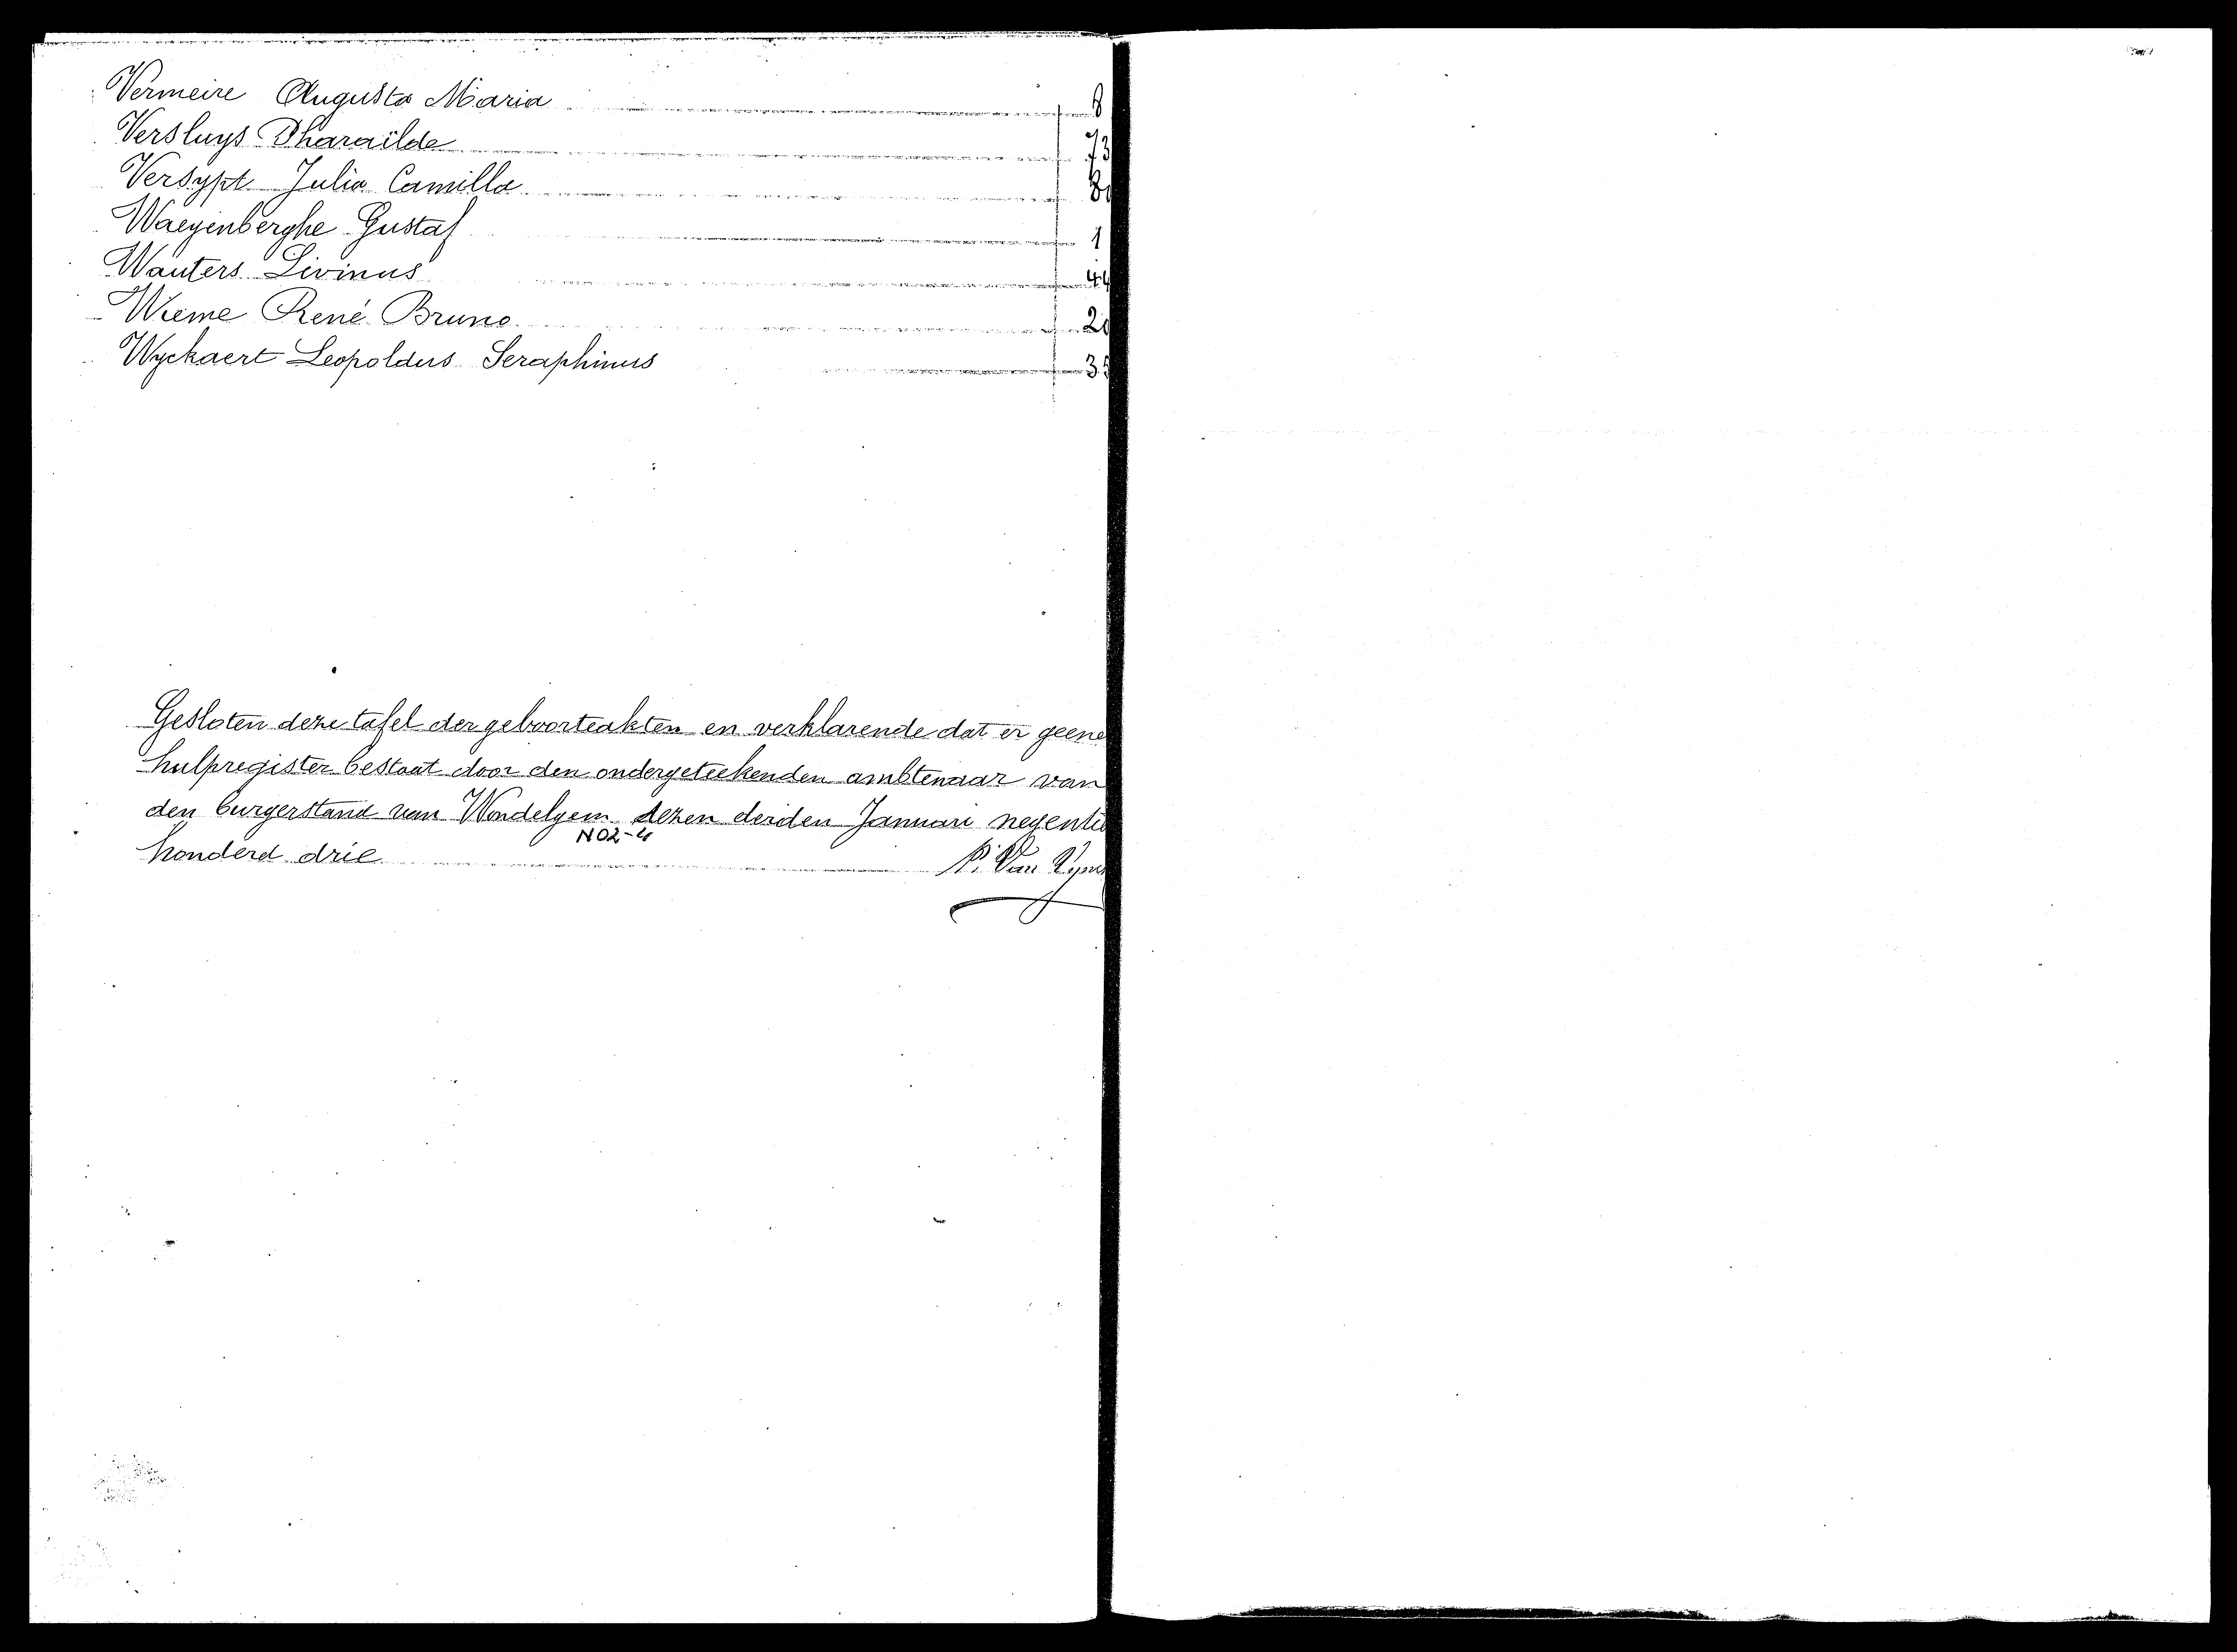 Vermeire Augusta Maria 8
Versluys Pharaïlde 73
Versypt Julia Camilla 8
Waeyenberghe Gustaf 1
Wauters Livinus 44
Wieme René Bruno 20
Wyckaert Leopoldus Seraphinus 35
Gesloten deze tafel der geboorteakten en verklarende dat er geene
hulpregister bestaat door den ondergeteekenden ambtenaar van
den burgerstand van Wondelgem dezen derden Januari negentie
NO2-4
honderd drie P. Van